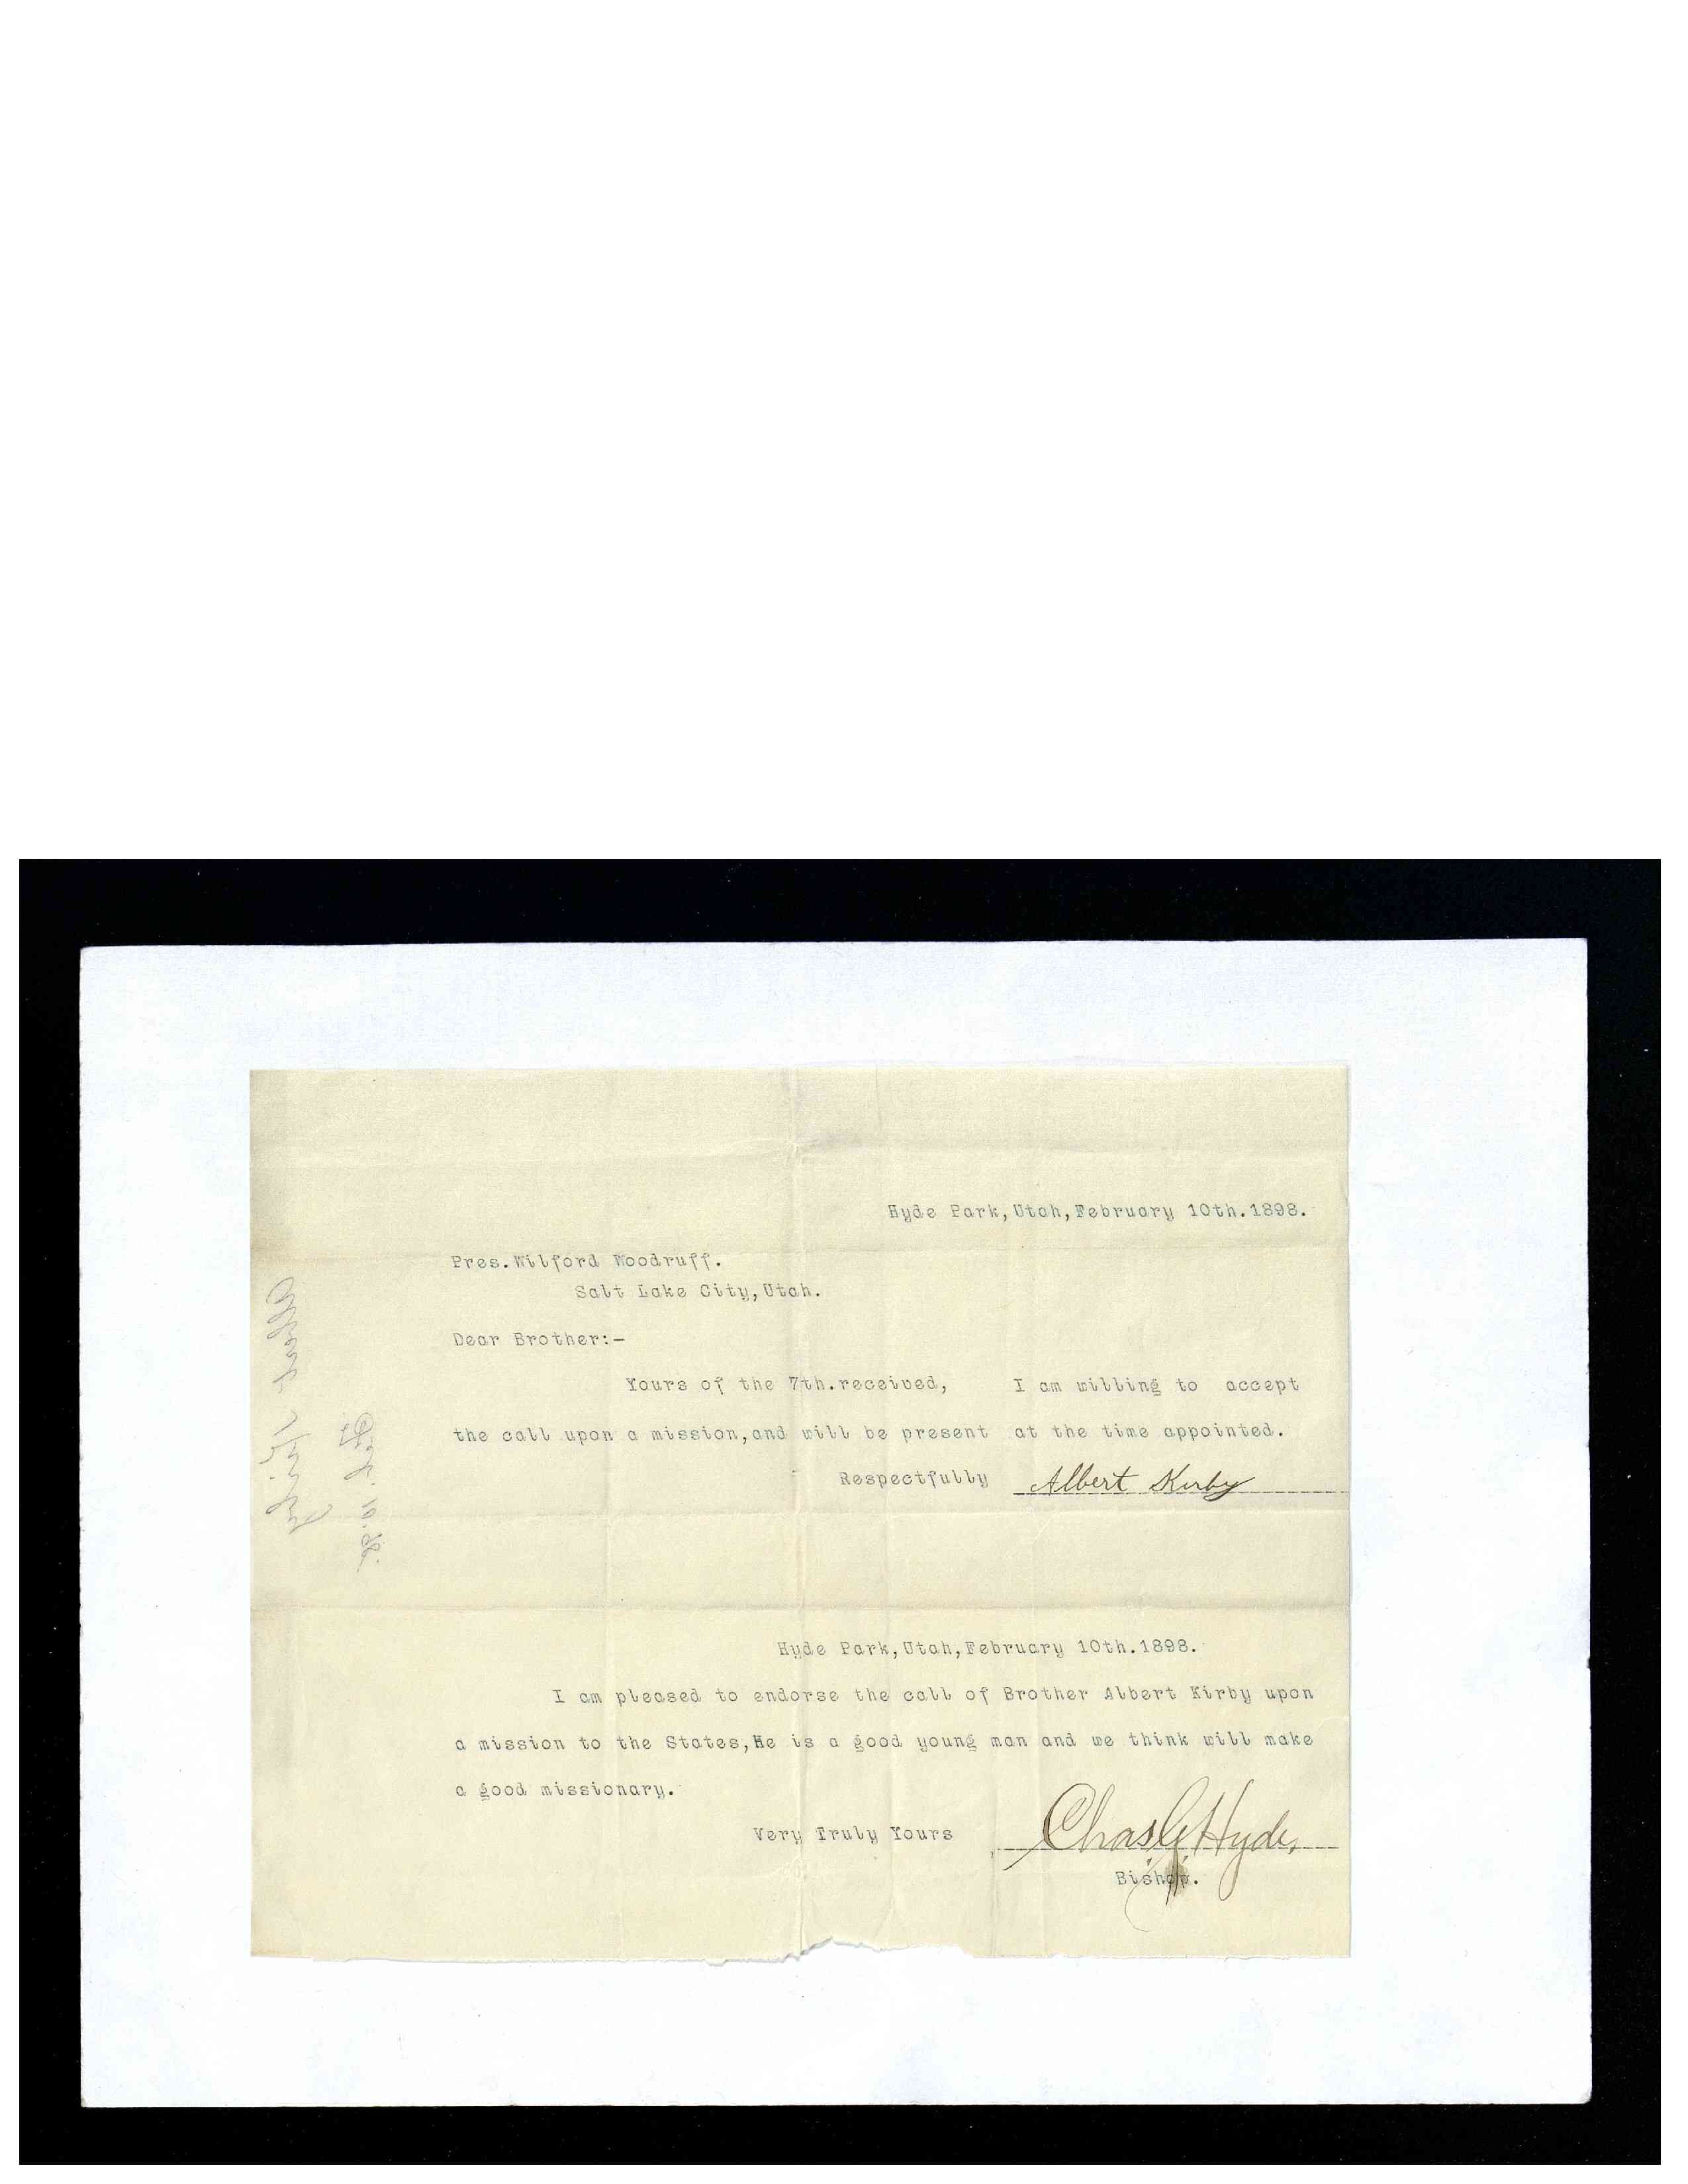 Hyde Park,Utah,February 10th.1898.
Pres.Wilford Woodruff.
Salt Lake City,Utah.
Dear Brother:-
Yours of the 7th.received, I am willing to accept
the call upon a mission,and will be present at the time appointed.
Respectfully Albert Kirby
Albert Kirby
Feby. 10. 98.
Hyde Park,Utah,February 10th.1898.
I am pleased to endorse the call of Brother Albert Kirby upon
a mission to the States,He is a good young man and we think will make
a good missionary.
Very Truly Yours Chas G Hyde,
Bishop.